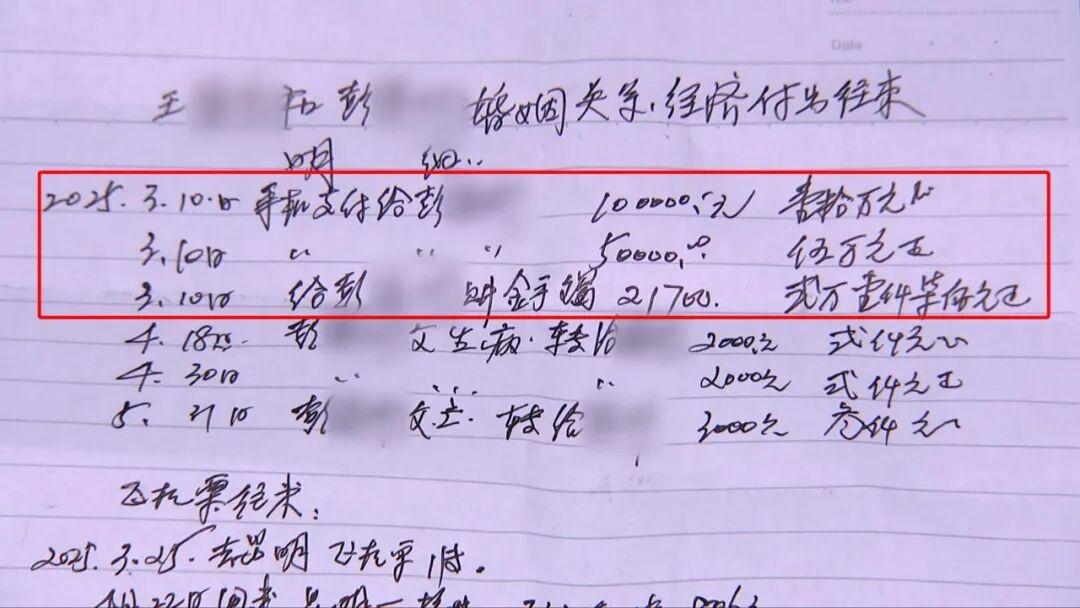 Date
王 和彭 婚姻关系.经济付出往来
明 细..
2025.3.10.日 手机支付给彭 100000.元 壹拾万元正
3.10日 〃 〃 50000.00 伍万元正
3.10日 给彭 金手镯 21700. 弍万壹仟柒佰元正
4.18日. 彭 父生病.转给 2000.元 弍仟元正
4.30日 〃 〃 〃 2000元 弍仟元正
5.21日 彭 父亡.转给 3000元 叁仟元正
飞机票往来:
2025.3.25.去昆明飞机票1张.